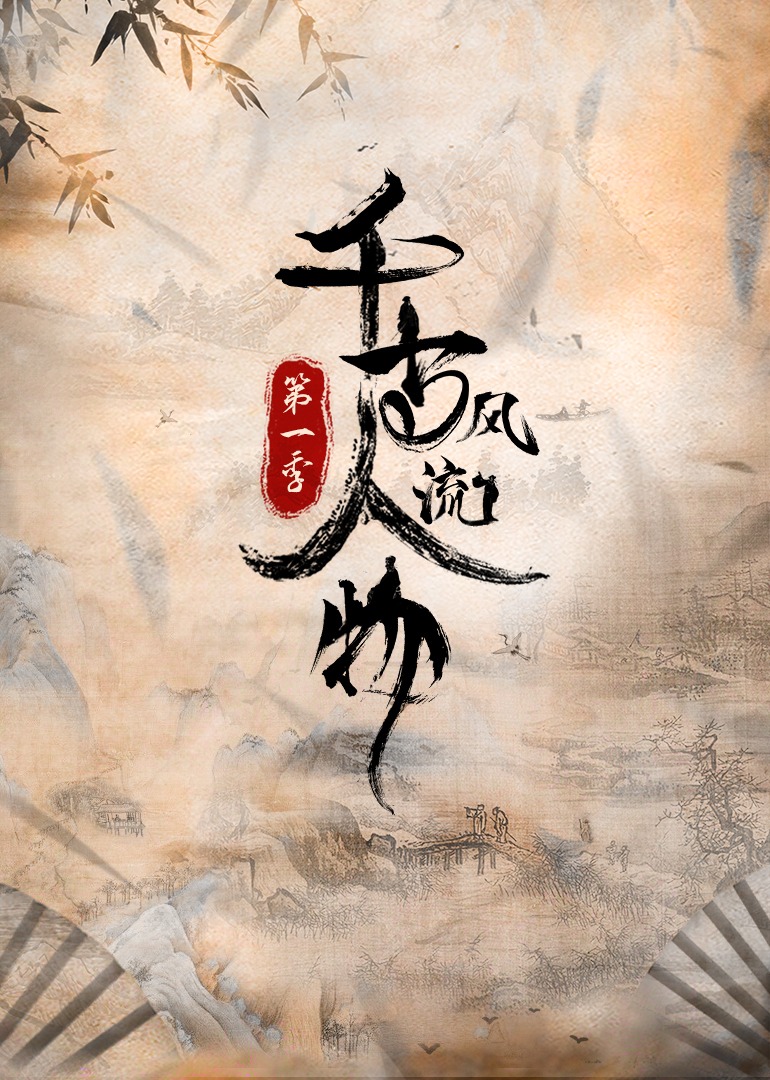 千古
风流
人物
第一季